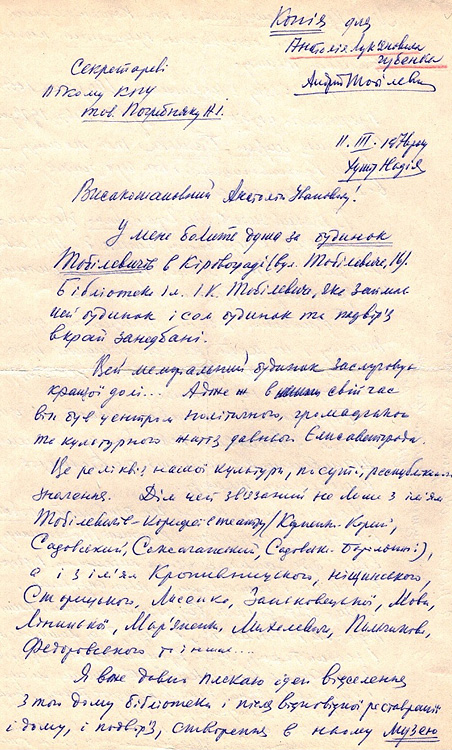 Копія для
Анатолія Лук'яновича
Губенка
Андрій Тобілевич
Секретареві
міському КПУ
тов. Погребняку А.І.
11. III. 197 року
Хутір Надія
Високошановний Анатолію Івановичу!
У мене болить душа за будинок
Тобілевичів в Кіровограді (вул. Тобілевича,
Бібліотека ім. І.К. Тобілевича, яка займає
цей будинок і сам будинок та подвір'я
вкрай занедбані.
Цей меморіальний будинок заслуговує
кращої долі... Адже ж в свій час
він був центром політичного, громадського
та культурного життя давнього Єлисаветграда.
Це реліквія нашої культури, по суті, республіканського
значення. Дім цей зв'язаний не лише з ім'ям
Тобілевичів-корифеїв театру (Карпенко-Карий,
Садовський, Саксаганський, Садовська-Барілотті),
а і з ім'ям Кропивницького, Ніщинського,
Старицького, Лисенка, Заньковецької, Мови,
Ліницької, Мар'яненка, Михалевича,
Федоровського та інших....
Я вже давно плекаю ідею виселення
з того дому бібліотеки і після відповідної реставрації
і дому, і подвір'я, створення в ньому музею